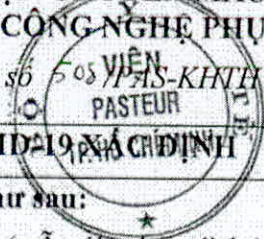 CÔNG NGHỆ PHỤ
số 508/PAS-KHTH
VIỆN
PASTEUR
TP.HỒ CHÍ MINH
ID-19 XÁC ĐỊNH
ư sau: